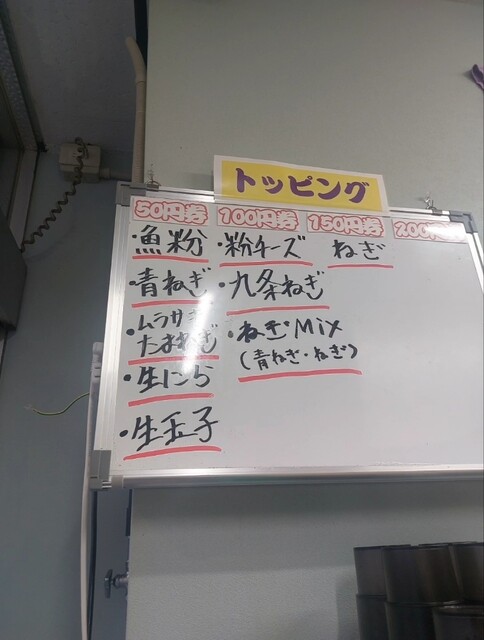 トッピング
50円券
・魚粉
・青ねぎ
・ムラサキ
たまねぎ
・生にら
・生玉子
100円券
・粉チーズ
・九条ねぎ
・ねぎMix
(青ねぎ・ねぎ)
150円券
ねぎ
200円券